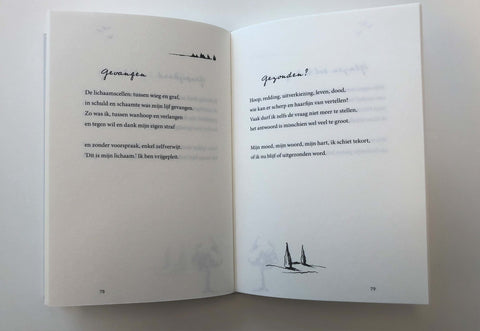 Gevangen
De lichaamscellen: tussen wieg en graf,
in schuld en schaamte was mijn lijf gevangen.
Zo was ik, tussen wanhoop en verlangen
en tegen wil en dank mijn eigen straf
en zonder voorspraak, enkel zelfverwijt.
'Dit is mijn lichaam'! Ik ben vrijgepleit.
78
Gezonden?
Hoop, redding, uitverkiezing, leven, dood,
wie kan er scherp en haarfijn van vertellen?
Vaak durf ik zelfs de vraag niet meer te stellen,
het antwoord is misschien wel veel te groot.
Mijn moed, mijn woord, mijn hart, ik schiet tekort,
of ik nu blijf of uitgezonden word.
79